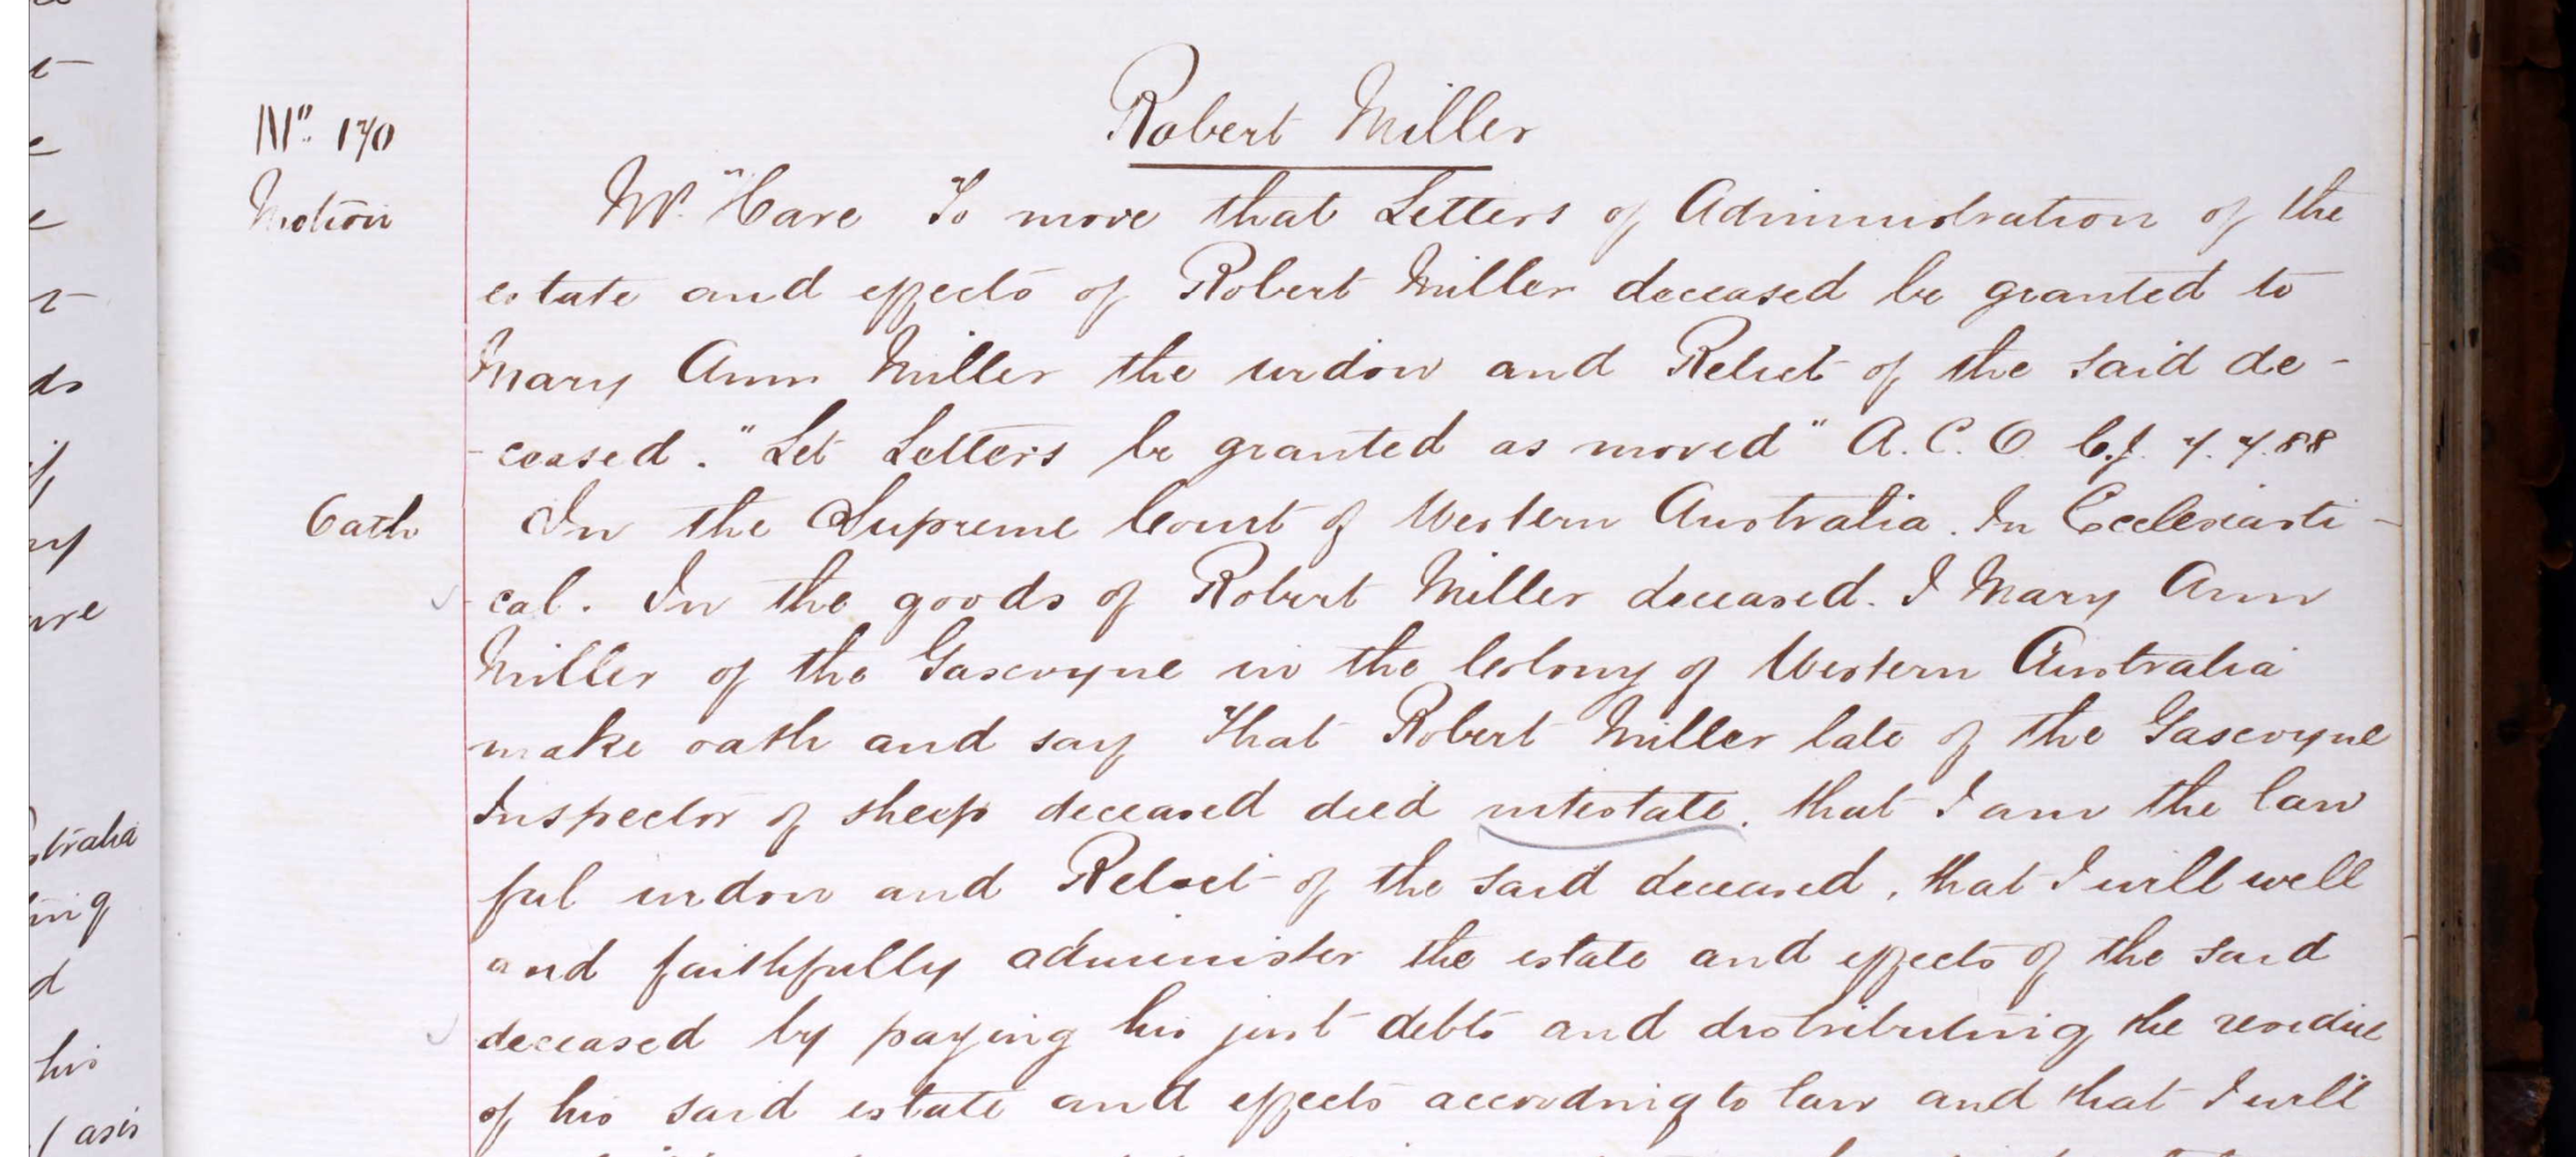 Robert Miller
No. 170
Motion
Mr. "Hare To move that Letters of Administration of the
estate and effects of Robert Miller deceased be granted to
Mary Ann Miller the widow and Relict of the said de-
-ceased. "Let Letters be granted as moved" A.C.O. C.J. 7.7.88
Oath
In the Supreme Court of Western Australia. In Ecclesiasti-
cal. In the goods of Robert Miller deceased. I Mary Ann
Miller of the Gascoyne in the Colony of Western Australia
make oath and say That Robert Miller late of the Gascoyne
Inspector of sheep deceased died intestate. that I am the law
ful widow and Relict of the said deceased, that I will well
and faithfully administer the estate and effects of the said
deceased by paying his just debts and distributing the residue
of his said estate and effects according to law and that I will
ds
if
ny
are
stralia
ing
d
his